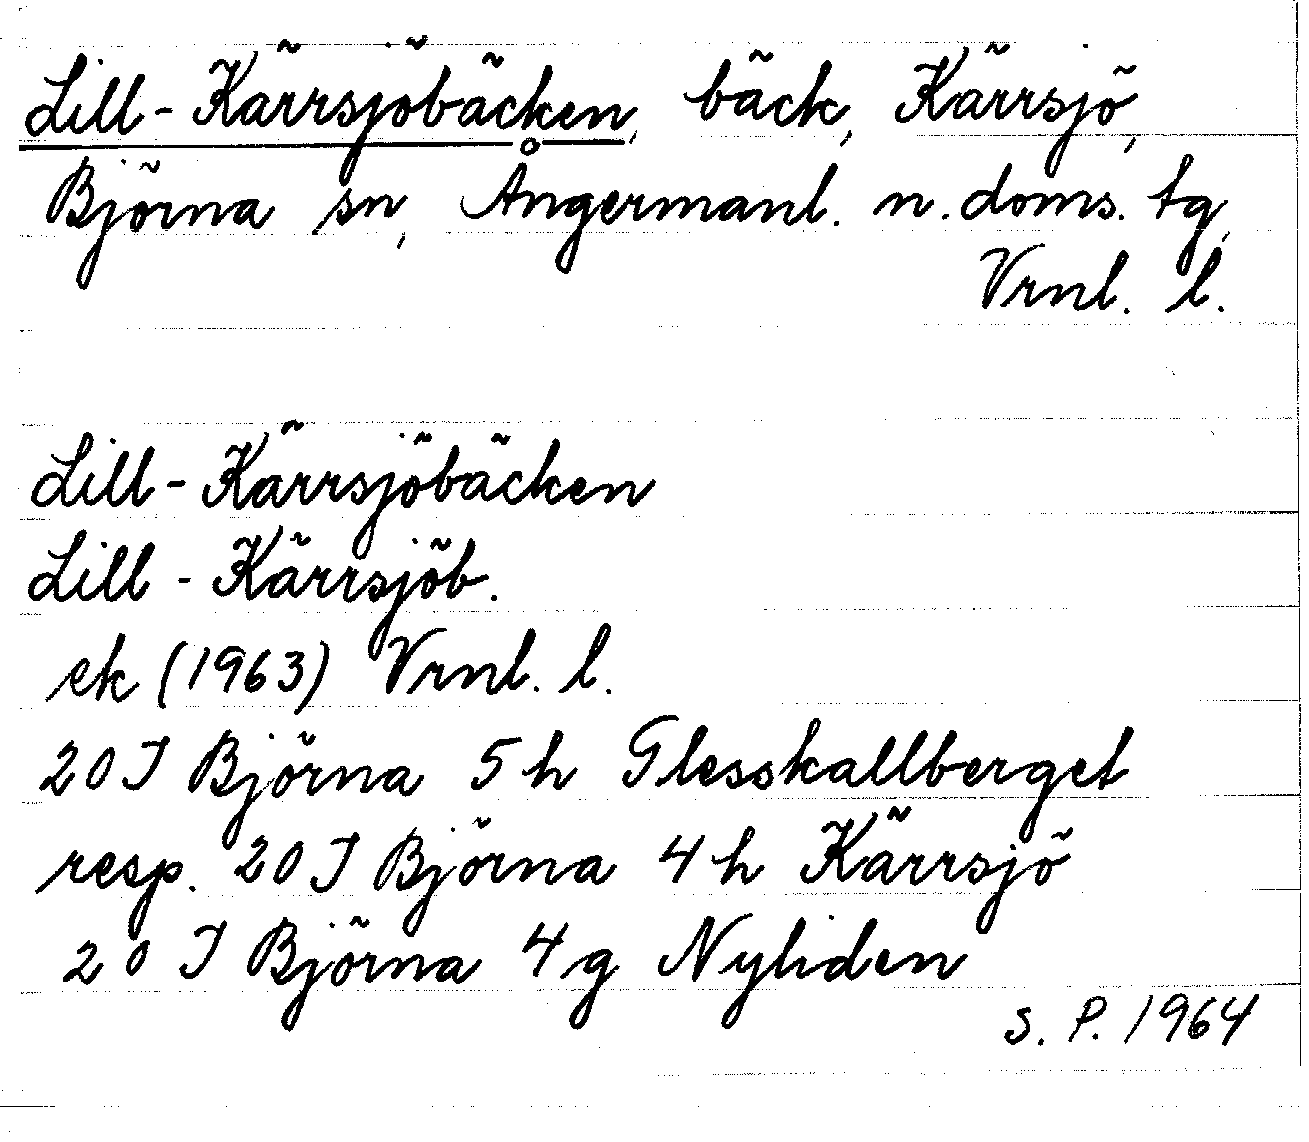 Lill-Kärrsjöbäcken, bäck, Kärrsjö,
Björna sn, Ångermanl. n. doms. tg,
Vrnl. l.
Lill-Kärrsjöbäcken
Lill-Kärrsjöb.
ek (1963) Vrnl. l.
20 J Björna 5 h Glesskallberget
resp. 20 J Björna 4 h Kärrsjö
20 J Björna 4 g Nyliden
S. P. 1964